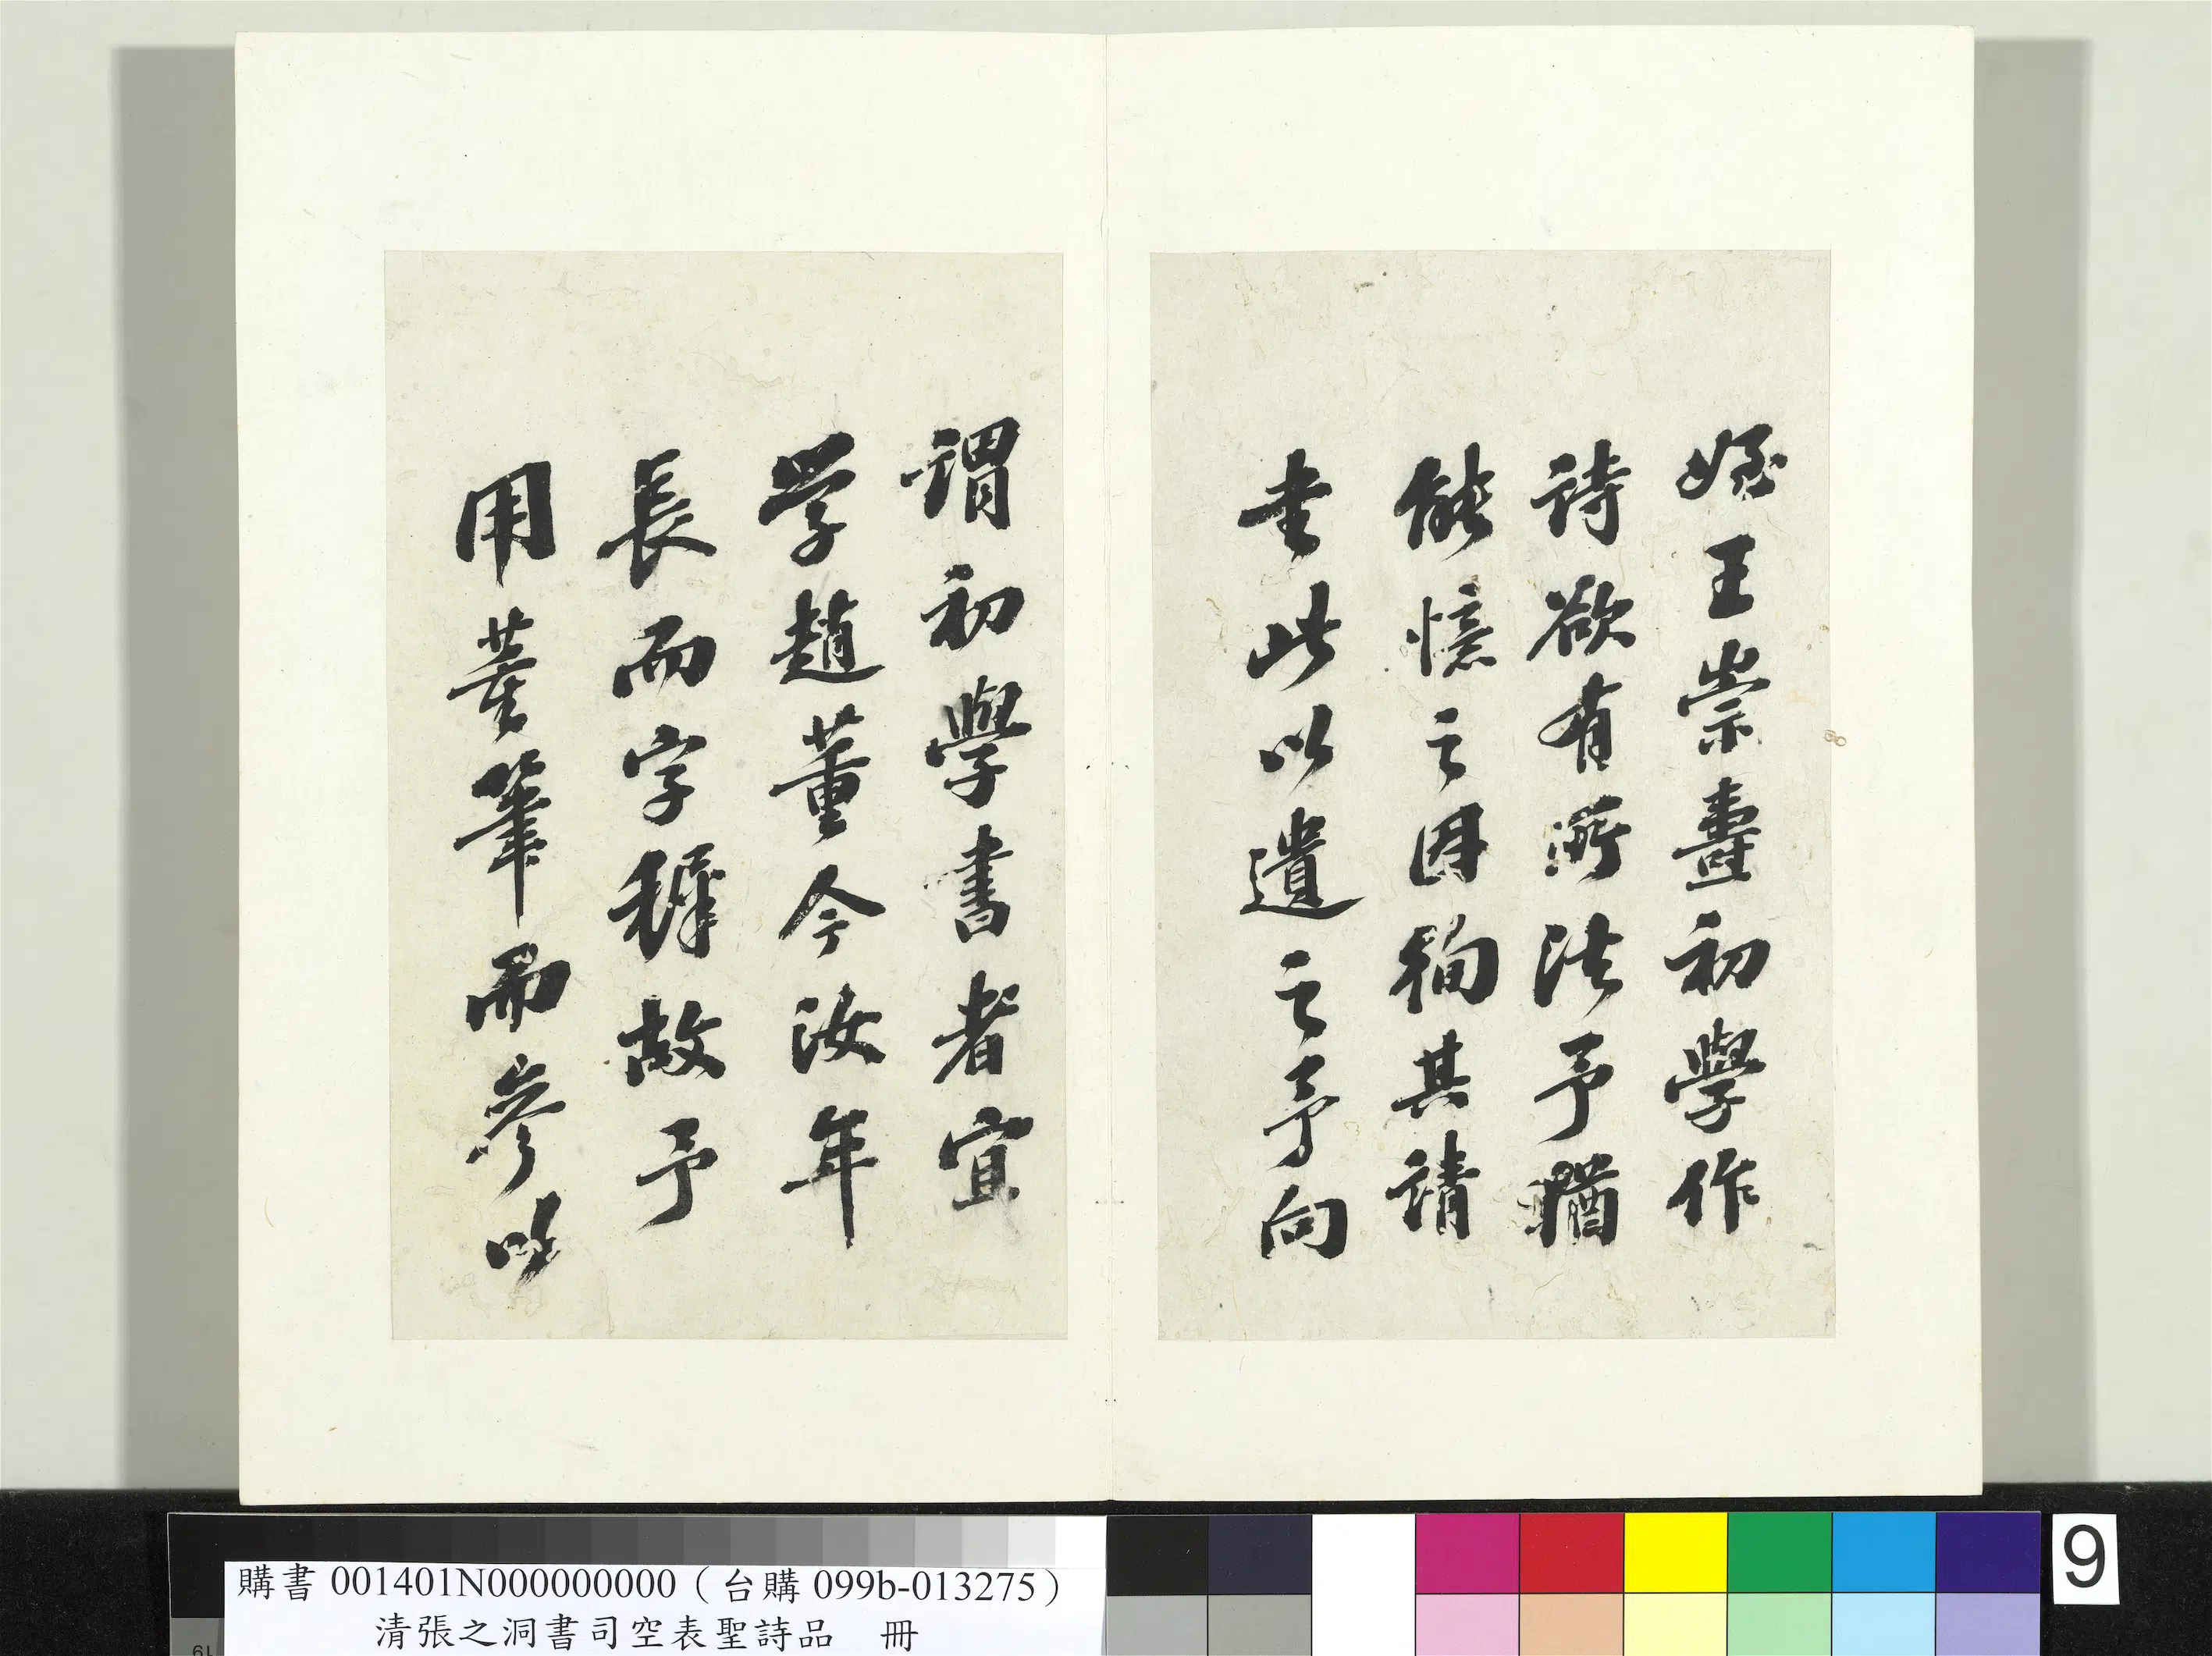 姪王崇燾初學作
詩欲有所法予猶
能憶之因徇其請
書此以遺之予向
謂初學書者宜
学趙董今汝年
長而字穉故予
用董筆而參以
購書 001401N000000000(台購 099b-013275)
清張之洞書司空表聖詩品 冊
9
19